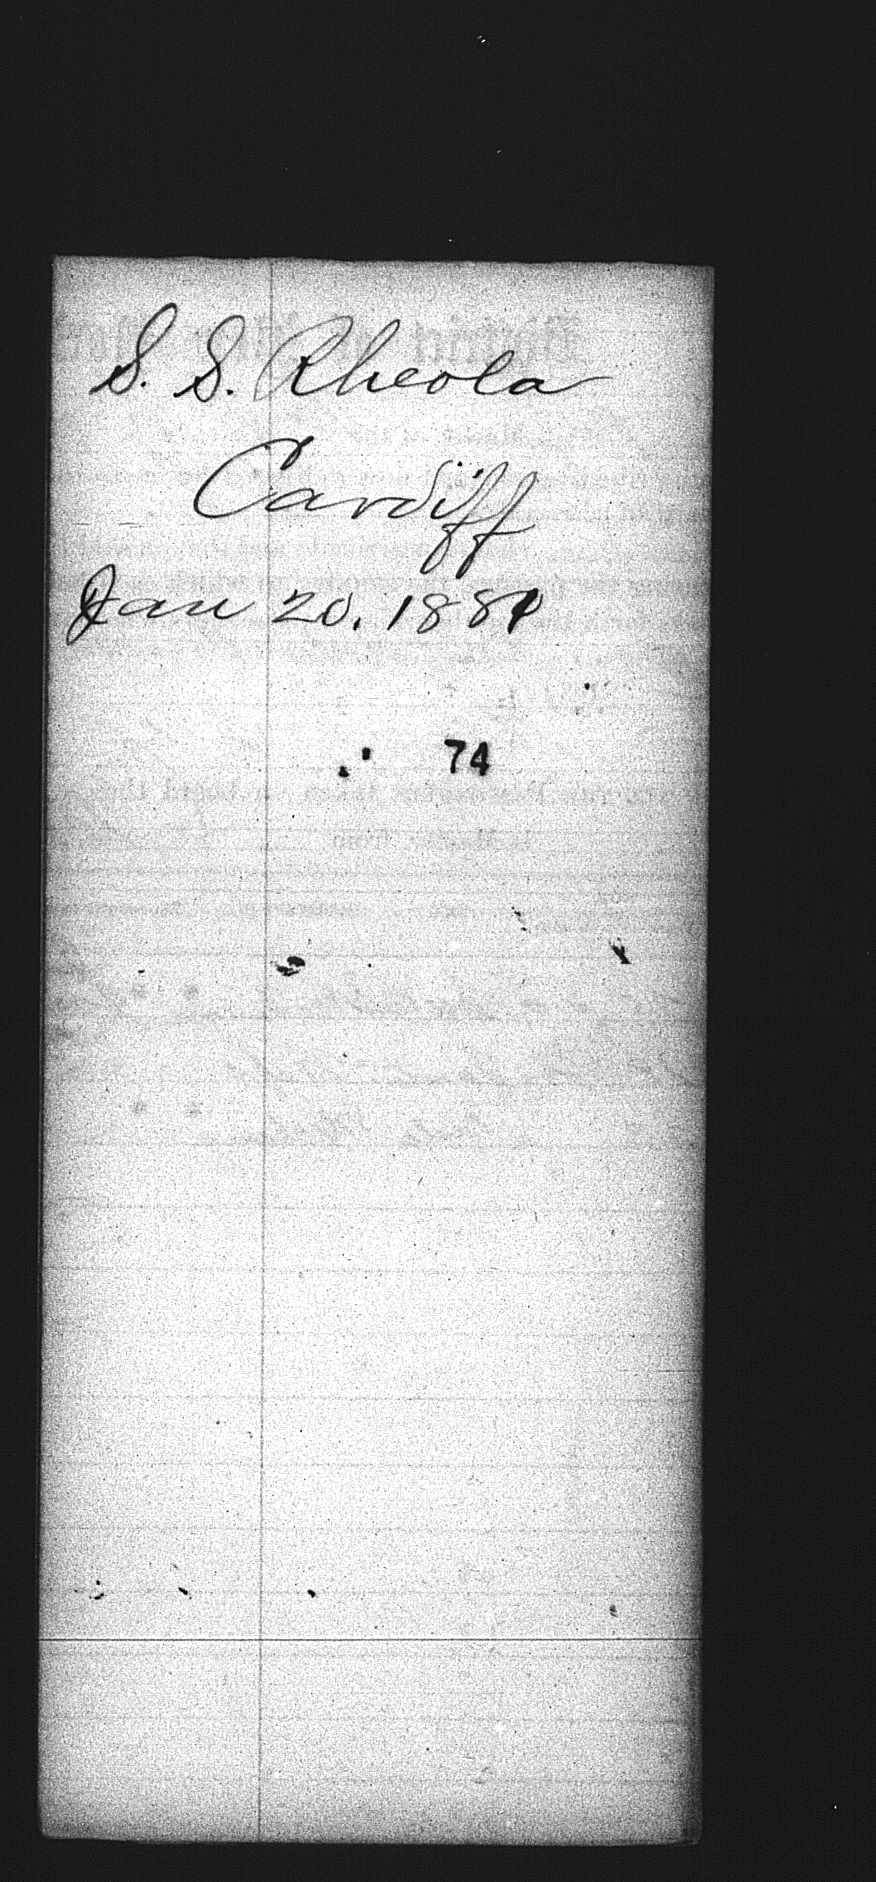 S. S. Rheola
Cardiff
Jan 20. 1881
74